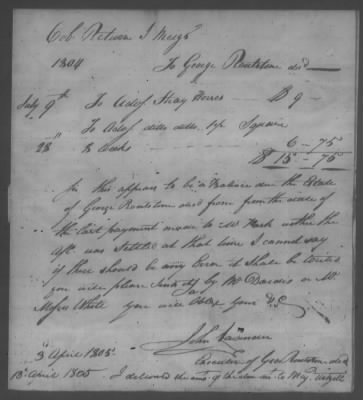 Col. Return J Meigs
1804 To George Roulstone decd
July 9th To Advg Stray Horses $9 -
" To Advg ditto ditto 1/2 Square
28 " 8 weeks 6 - 75
$15 - 75
As this appears to be a balance due the Estate
of George Roulstone decd from the date of
the last payment made to Mr Nash whether the
was settled at that time I cannot say
if there should be any Error it shall be
you will please by Mr or Mr
Moses White you will oblige yours
John
3 April 1805 Executor of Geo Roulstone decd
13 April 1805 I delivered the amt of the above to Maj